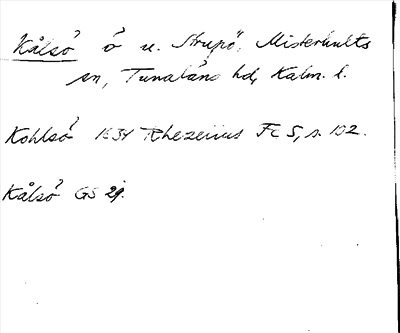 Kålsö ö u. Strupö, Misterhults
sn, Tunaläns hd, Kalm. l.
Kohlsö 1634 Rhezelius Fc 5, s. 102.
Kålsö GS 29.